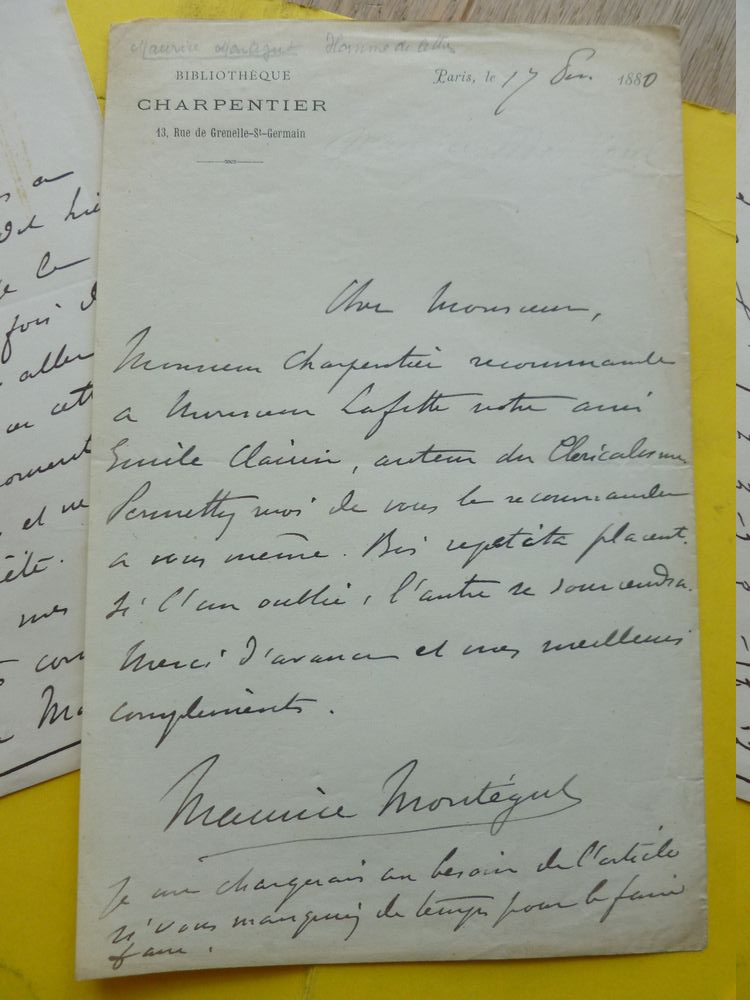 Maurice Montégut Homme de lettres
BIBLIOTHÈQUE
CHARPENTIER
13, Rue de Grenelle-St-Germain
Paris, le 17 1880
Cher Monsieur,
Monsieur Charpentier recommande
a Monsieur Lafitte notre ami
Emile Clairin, auteur du Clericalisme
Permettez moi de vous le recommander
a vous même. Bis repetita placent.
Si l'un oublie, l'autre se souviendra.
Merci d'avance et mes meilleurs
compliments.
Maurice Montégut
Je me chargerais au besoin de l'article
si vous manquiez de temps pour le faire
faire.
fois
aller
et ne
mes